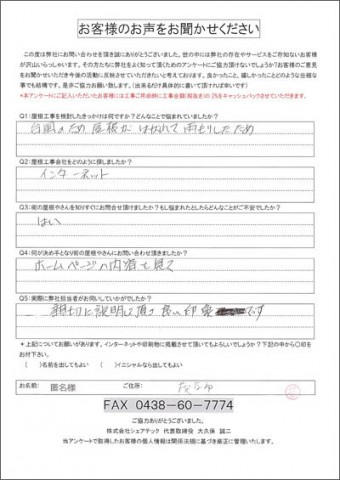 お客様のお声をお聞かせください
この度は弊社にお問い合わせを頂き誠にありがとうございました。世の中には弊社の存在やサービスをご存知ないお客様
が沢山いらっしゃいます。その方たちに弊社をよく知って頂くためのアンケートにご協力頂けないでしょうか?お客様のご意見
をお聞かせいただき今後の活動に反映させていただきたいと考えております。良かったこと、嬉しかったことのような些細な
事でも結構です。是非ご協力お願い致します。(出来るだけ具体的に書いて頂ければ幸いです)
*本アンケートにご記入いただいたお客様には工事ご用命時に工事金額(税抜き)の2%をキャッシュバックさせていただきます。
Q1:屋根工事を検討したきっかけは何ですか?どんなことで悩まれていましたか?
台風のため屋根がはがれて雨もりしたため
Q2:屋根工事会社をどのように探しましたか?
インターネット
Q3:街の屋根やさんを知りすぐにお問合せ頂けましたか?もし悩まれたとしたらどんなことがご不安でしたか?
はい
Q4:何が決め手となり街の屋根やさんにお問い合わせ頂きましたか?
ホームページの内容を見て
Q5:実際に弊社担当者がお伺いしていかがでしたか?
親切に説明して頂き良い印象です
*上記についてお願いがあります。インターネットや印刷物に掲載させて頂いてもよろしいでしょうか?下記の中から〇印を
お付下さい。
( )名前を出してもよい ( )イニシャルなら出してもよい
お名前: 匿名様 ご住所:
FAX 0438-60-7774
ご協力ありがとうございました。
株式会社シェアテック 代表取締役 大久保 誠二
当アンケートで取得したお客様の個人情報は関係法規に基づき厳正に管理いたします。